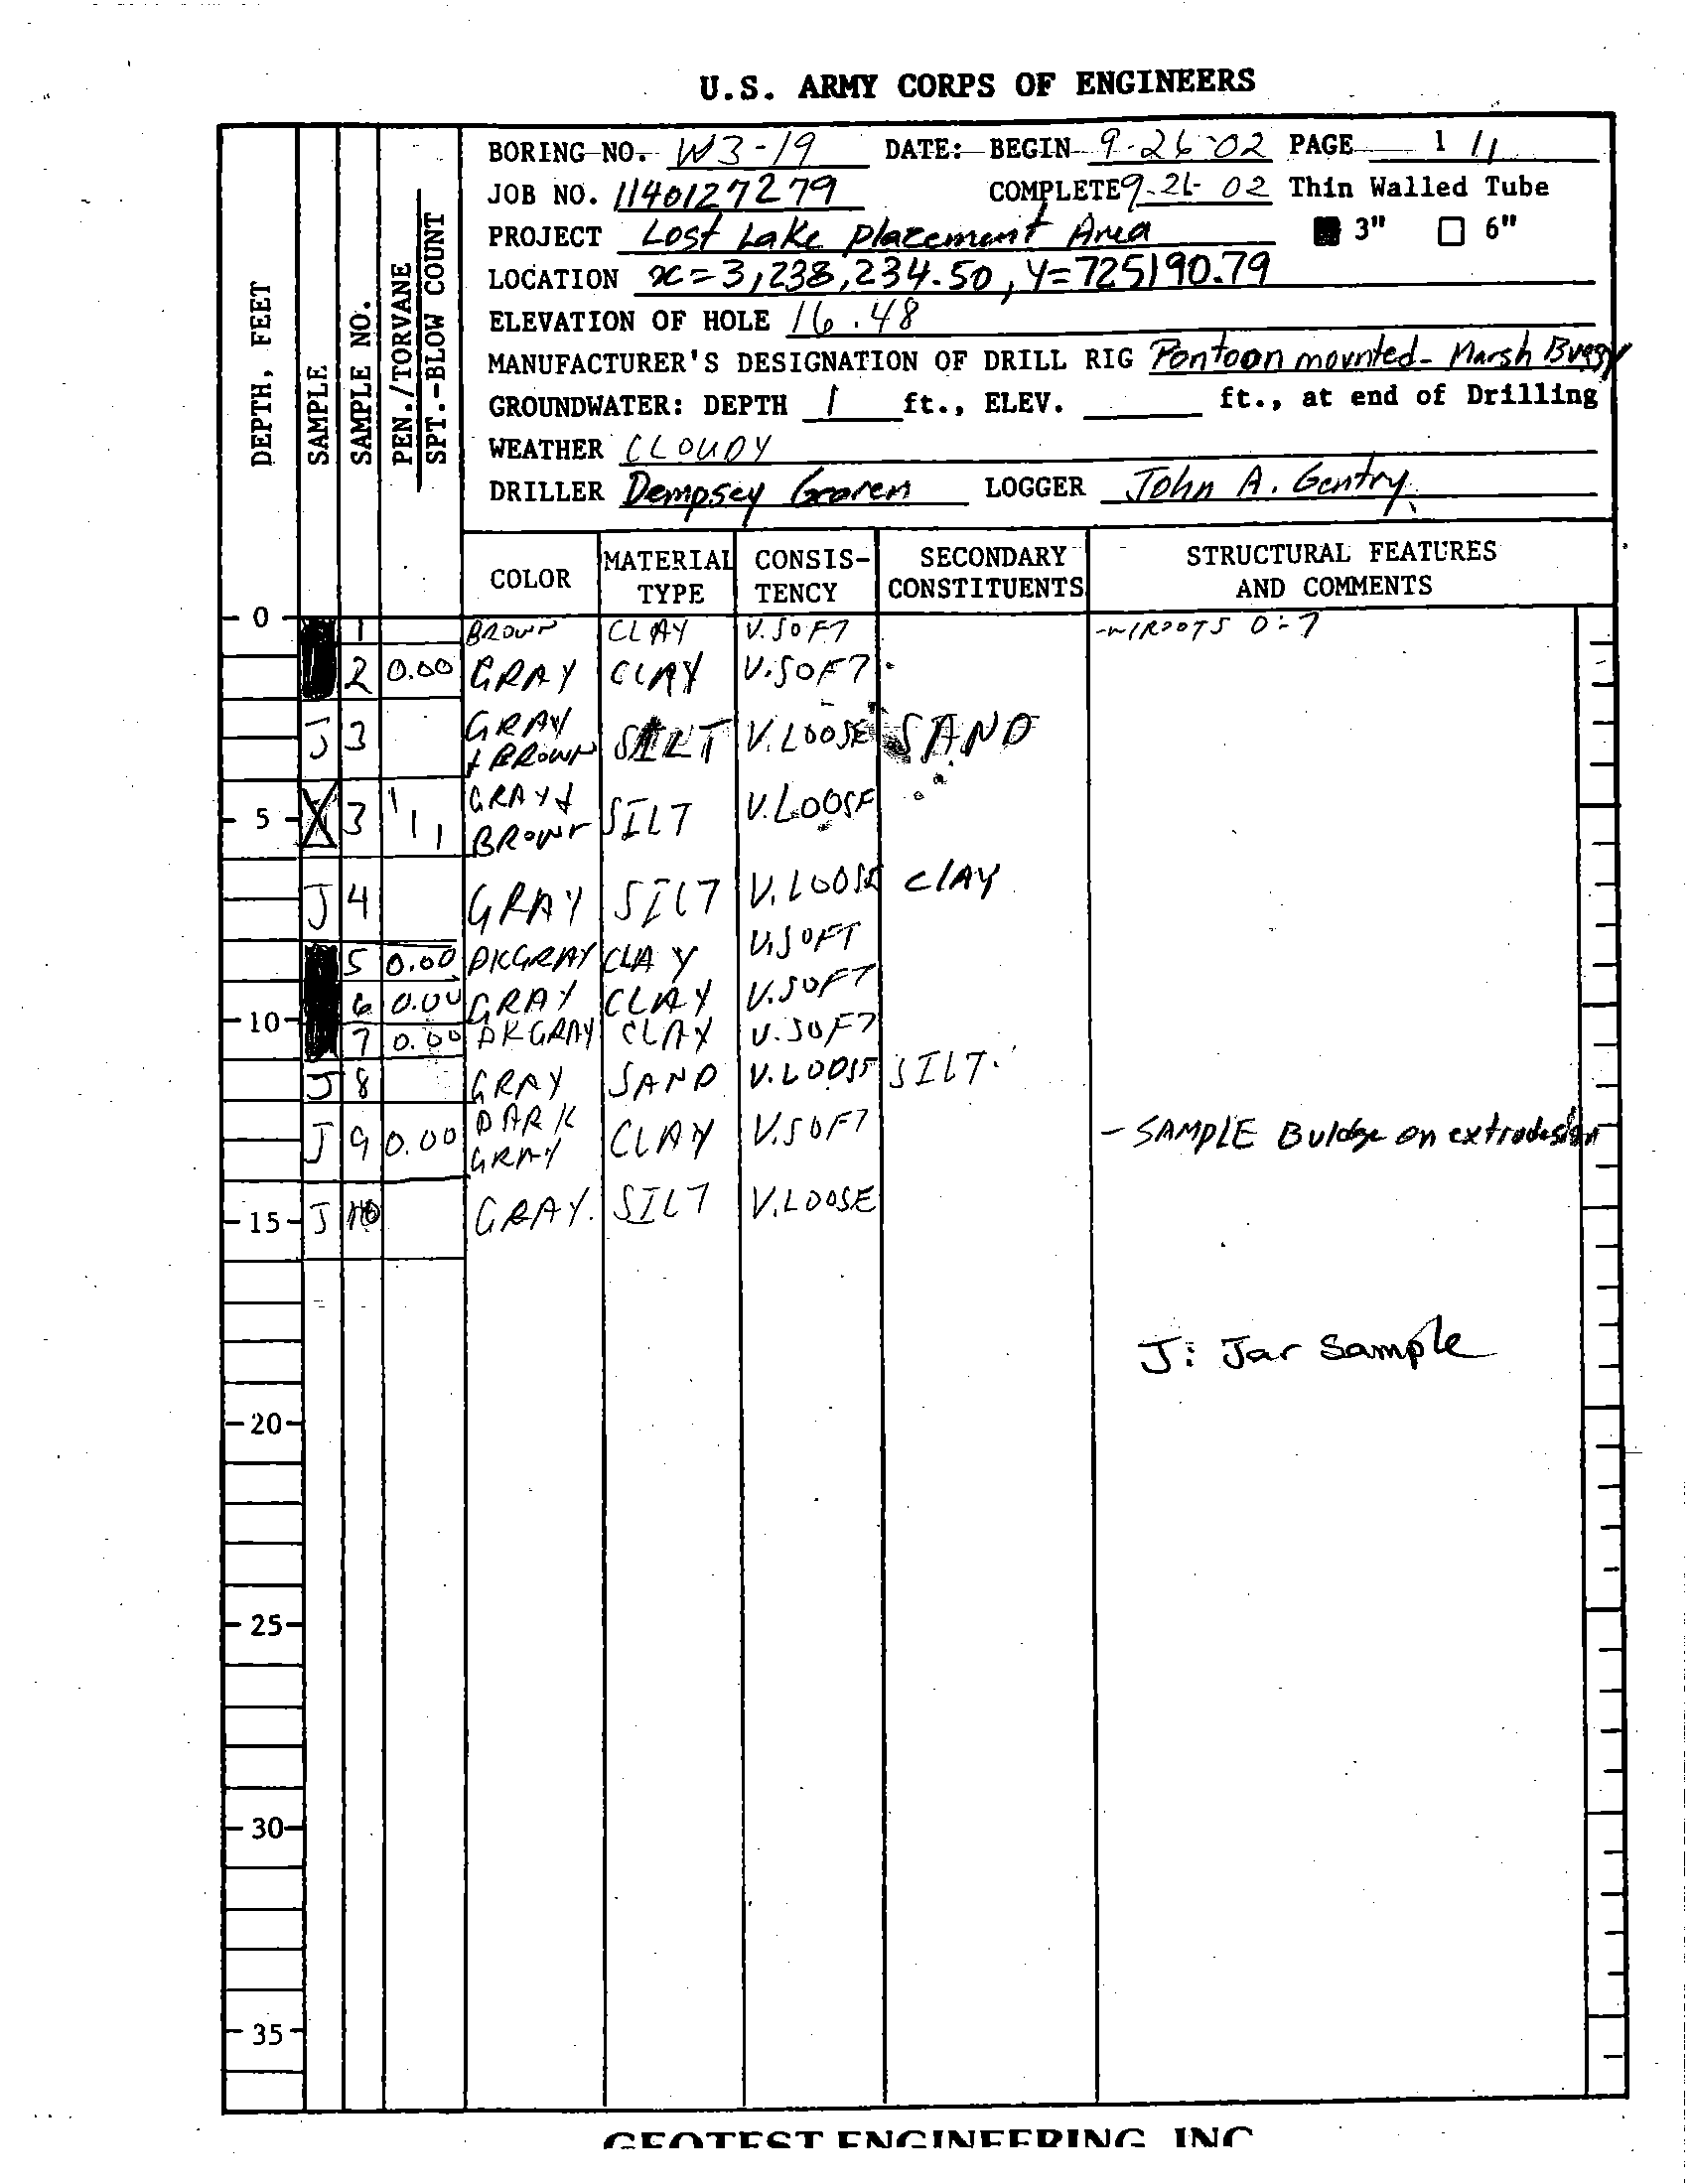 U.S. ARMY CORPS OF ENGINEERS
BORING NO. W3-19 DATE: BEGIN 9-26-02 PAGE 1 / 1
JOB NO. 1140127279 COMPLETE 9-26-02 Thin Walled Tube
PROJECT Lost Lake Placement Area 3" 6"
LOCATION x=3,238,234.50, Y=725190.79
ELEVATION OF HOLE 16.48
MANUFACTURER'S DESIGNATION OF DRILL RIG Pontoon mounted- Marsh Buggy
GROUNDWATER: DEPTH 1 ft., ELEV. ft., at end of Drilling
WEATHER CLOUDY
DRILLER Dempsey LOGGER John A. Gentry
DEPTH, FEET
SAMPLE
SAMPLE NO.
PEN./TORVANE
SPT.-BLOW COUNT
COLOR MATERIAL TYPE CONSIS-TENCY SECONDARY CONSTITUENTS STRUCTURAL FEATURES AND COMMENTS
0 1 BROWN CLAY V.SOFT -W/ROOTS 0-
2 0.00 GRAY CLAY V.SOFT
J 3 GRAY + BROWN SILT V.LOOSE SAND
5 3 1 1 1 GRAY + BROWN SILT V.LOOSE
J 4 GRAY SILT V.LOOSE CLAY
5 0.00 DKGRAY CLAY V.SOFT
6 0.00 GRAY CLAY V.SOFT
10 7 0.00 DKGRAY CLAY V.SOFT
J 8 GRAY SAND V.LOOSE SILT
J 9 0.00 DARK GRAY CLAY V.SOFT - SAMPLE Buldge on extrudesion
15 J 10 GRAY. SILT V.LOOSE
J: Jar Sample
20
25
30
35
GEOTEST ENGINEERING INC